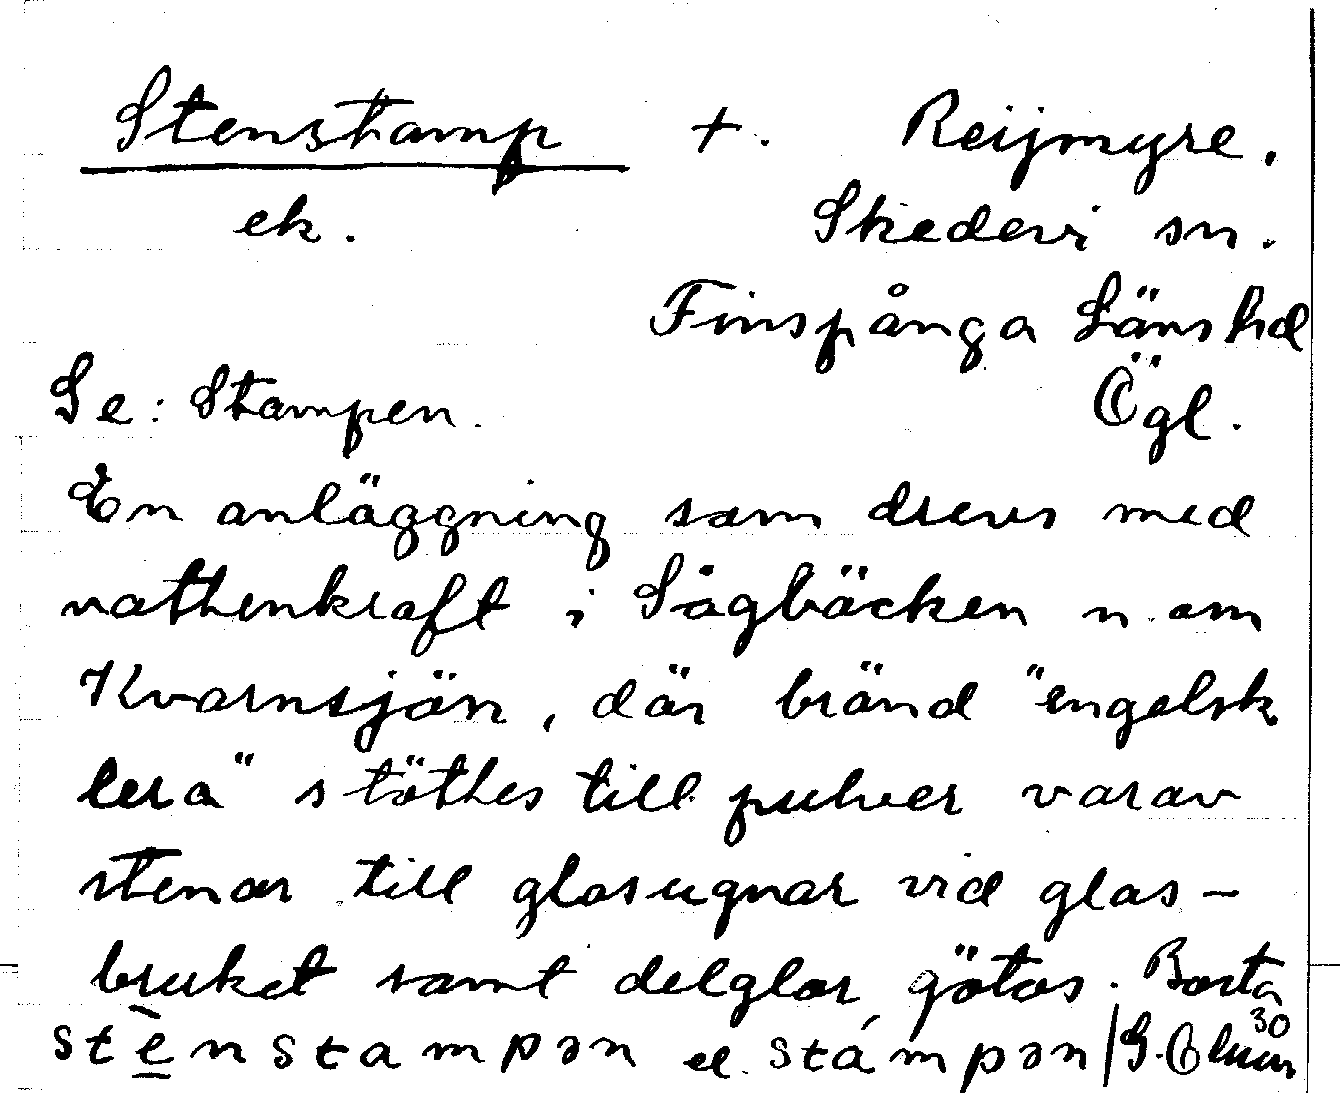 Stenstamp +. Reijmyre.
ek. Skedevi sn.
Finspånga Länshd
Se: Stampen. Ögl.
En anläggning som drevs med
vattenkraft i Sågbäcken n. om
Kvarnsjön, där bränd "engelsk
lera" stöttes till pulver varav
stenar till glasugnar vid glas-
bruket samt delglar götos. Borta
stènstampən el. stámpən/G. 30